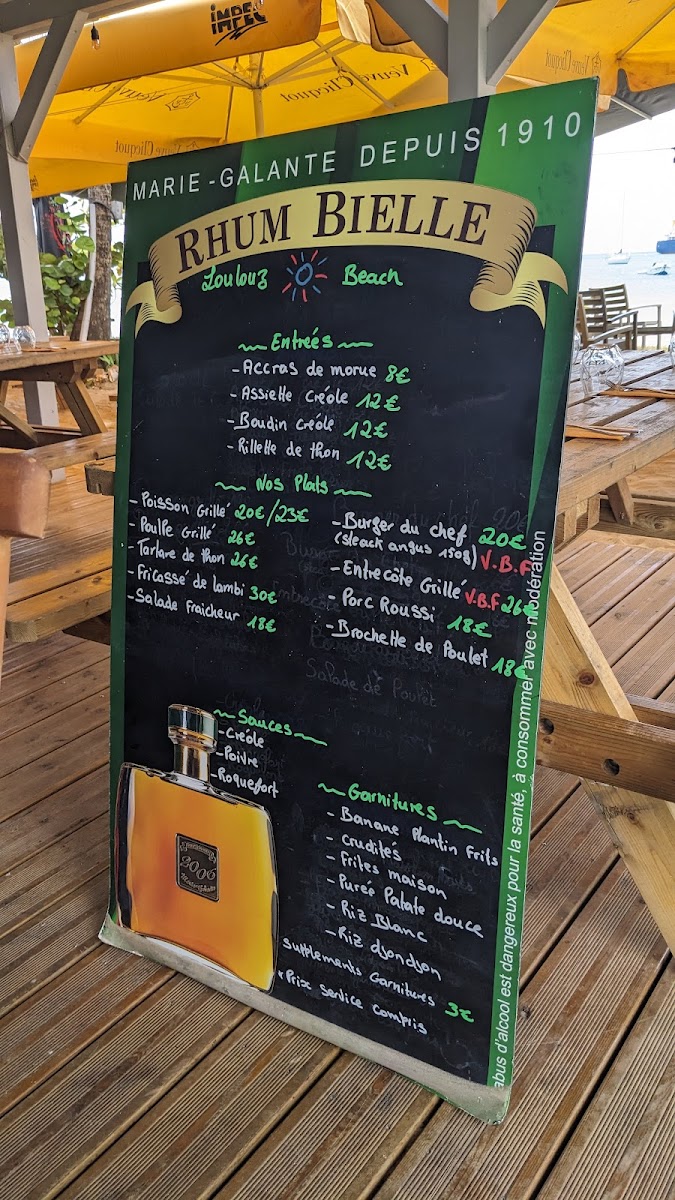 IMPEC
Veuve Clicquot
Veuve Clicquot
MARIE-GALANTE DEPUIS 1910
RHUM BIELLE
Loulouz Beach
Entreés
- Accras de morue 8€
- Assiette créole 12€
- Boudin créole 12€
- Rillette de thon 12€
Nos Plats
- Poisson Grillé 20€/23€
- Poulpe Grillé 26€
- Tartare de thon 26€
- Fricassé de lambi 30€
- Salade fraicheur 18€
- Burger du chef 20€
(steack angus 150g) V.B.F
- Entrecôte Grillé V.B.F 26€
- Porc Roussi 18€
- Brochette de Poulet 18€
Salade de Poulet
Sauces
- Créole
- Poivre
- Roquefort
Garnitures
- Banane Plantin Frits
- Crudités
- Frites maison
- Pureé Patate douce
- Riz Blanc
- Riz djondjon
Supplements Garnitures 3€
* Prix service compris
2006
abus d'alcool est dangereux pour la santé, à consommer avec modération